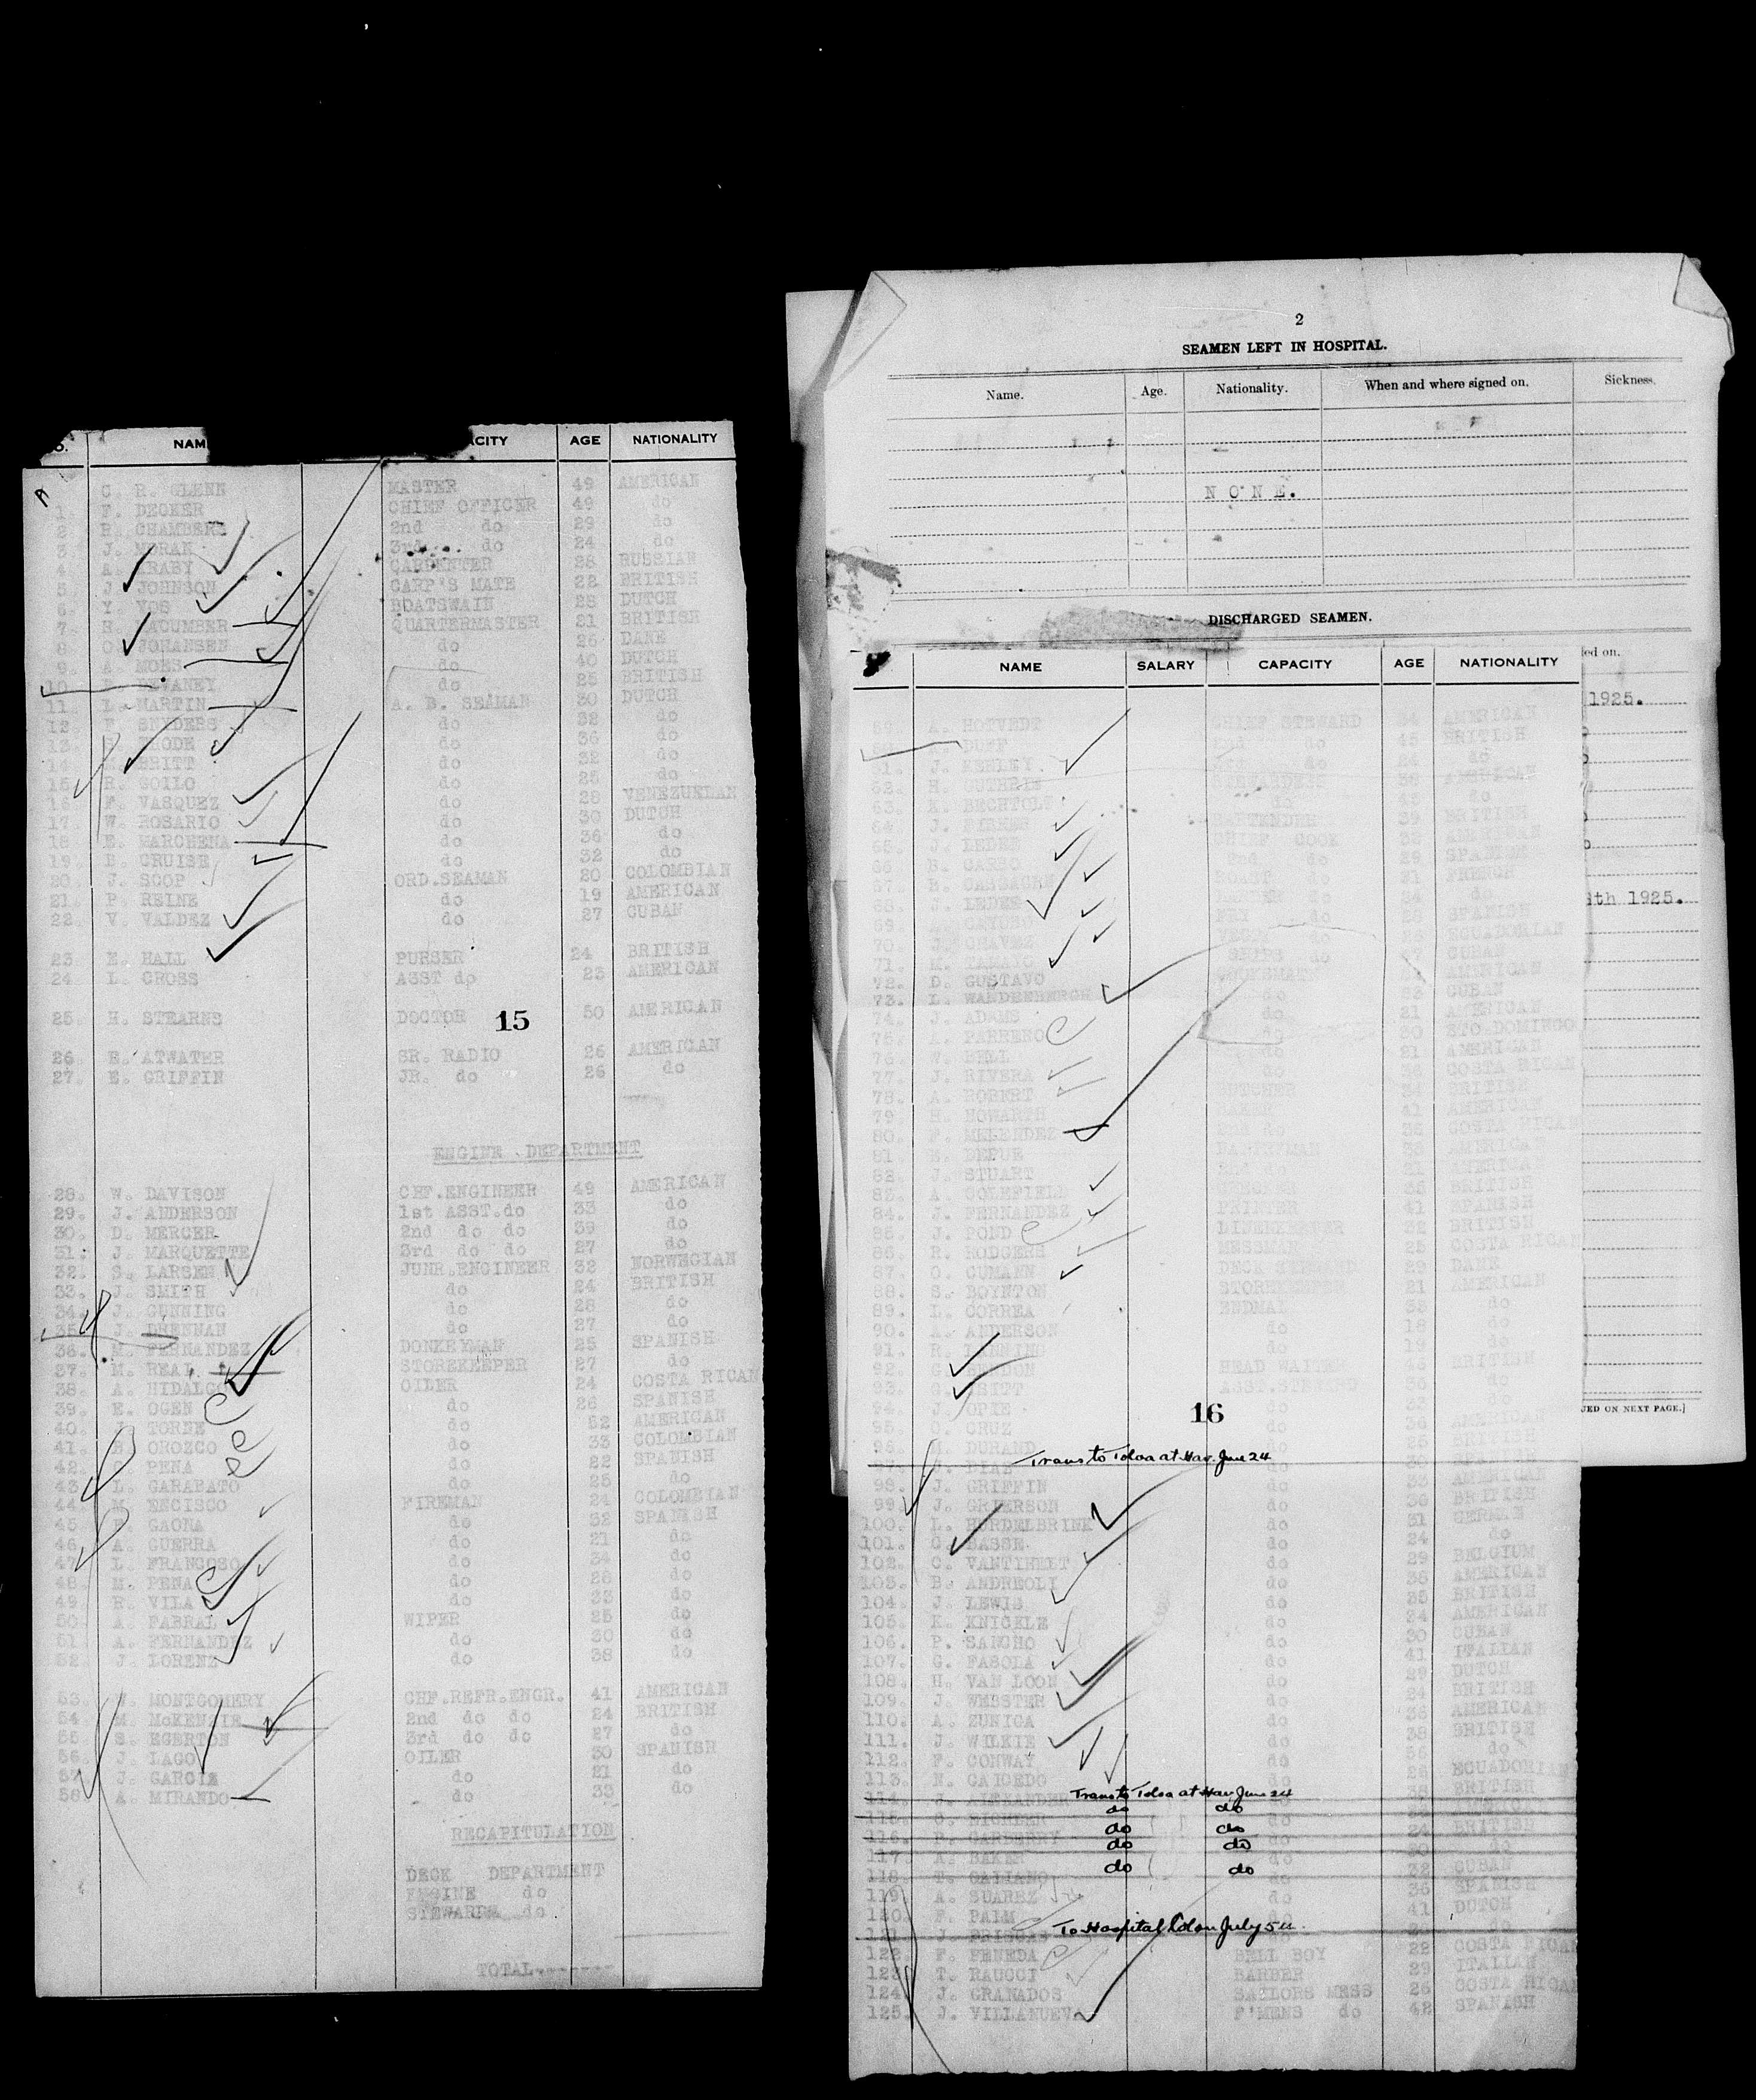 NAM CITY AGE NATIONALITY
C. R. GLENN MASTER 49 AMERICAN
1. F. DECKER CHIEF OFFICER 49 do
2. R. CHAMBERS 2nd do 29 do
3. J. MORAN 3rd do 24 do
4. A. KRABY CARPENTER 28 RUSSIAN
5. J. JOHNSON CARP'S MATE 22 BRITISH
6. Y. VOS BOATSWAIN 28 DUTCH
7. MACUMBER QUARTERMASTER 21 BRITISH
8. O. JOHANSEN do 26 DANE
9. A. MOES do 40 DUTCH
10. DEVANEY do 25 BRITISH
11. L. MARTIN A. B. SEAMAN 30 DUTCH
12. F. SNYDERS do 32 do
13. RHODE do 36 do
14. BRITT do 32 do
15. R. GOILO do 25 do
16. F. VASQUEZ do 28 VENEZUELAN
17. W. ROSARIO do 30 DUTCH
18. E. MARCHENA do 36 do
19. B. CRUISE do 32 do
20. J. SCOP ORD.SEAMAN 20 COLOMBIAN
21. P. REINE do 19 AMERICAN
22. V. VALDEZ do 27 CUBAN
23. E. HALL PURSER 24 BRITISH
24. L. CROSS ASST do 23 AMERICAN
25. H. STEARNS DOCTOR 50 AMERICAN
15
26. E. ATWATER SR. RADIO 26 AMERICAN
27. E. GRIFFIN JR. do 26 do
ENGINE DEPARTMENT
28. W. DAVISON CHF.ENGINEER 49 AMERICAN
29. J. ANDERSON 1st ASST.do 33 do
30. D. MERCER 2nd do do 39 do
31. J. MARQUETTE 3rd do do 27 do
32. S. LARSEN JUNR.ENGINEER 32 NORWEGIAN
33. J. SMITH do 24 BRITISH
34. J. GUNNING do 28 do
35. J. DRENNAN do 27 do
36. M. FERNANDEZ DONKEYMAN 25 SPANISH
37. M. REAL STOREKEEPER 27 do
38. A. HIDALGO OILER 24 COSTA RICAN
39. E. OGEN do 26 SPANISH
40. J. TORNE do 52 AMERICAN
41. OROZCO do 33 COLOMBIAN
42. PENA do 22 SPANISH
43. L. GARABATO do 25 do
44. M. ENCISCO FIREMAN 24 COLOMBIAN
45. GAONA do 32 SPANISH
46. A. GUERRA do 21 do
47. L. FRANGOSO do 34 do
48. M. PENA do 28 do
49. R. VILA do 23 do
50. A. PABRAL WIPER 25 do
51. A. FERNANDEZ do 30 do
52. J. LORENZ do 38 do
53. W. MONTGOMERY CHF.REFR.ENGR. 41 AMERICAN
54. M. McKENZIE 2nd do do 24 BRITISH
55. S. EGERTON 3rd do do 27 do
56. J. LAGO OILER 30 SPANISH
57. J. GARCIA do 21 do
58. A. MIRANDO do 33 do
RECAPITULATION
DECK DEPARTMENT
ENGINE do
STEWARDS do
TOTAL
2
SEAMEN LEFT IN HOSPITAL.
Name. Age. Nationality. When and where signed on. Sickness.
NONE.
DISCHARGED SEAMEN.
ed on.
NAME SALARY CAPACITY AGE NATIONALITY
1925.
A. HOTVEDT CHIEF STEWARD 34 AMERICAN
DUFF 2nd do 45 BRITISH
61. J. ASHLEY do do
62. H. GUTHRIE STEWARDESS 38 AMERICAN
63. BECHTOLD do 45 do
64. J. FISHER BARTENDER 39 BRITISH
65. J. LEDES CHIEF COOK AMERICAN
66. CARBO 2nd do 29 SPANISH
67. ROAST do 31 FRENCH
68. LEDEE do 34 do
4th 1925.
69. do SPANISH
70. CHAVEZ do ECUADORIAN
71. M. TAMAYO SHIPS do CUBAN
72. D. GUSTAVO AMERICAN
73. L. WANDENBERGH do CUBAN
74. ADAMS do 21 AMERICAN
75. A. PARRENO do 20 STO.DOMINGO
76. BELL do 21 AMERICAN
77. J. RIVERA do COSTA RICAN
78. A. ROBERT BUTCHER 34 BRITISH
79. H. HOWARTH 41 AMERICAN
80. F. MELENDEZ do 36 COSTA RICAN
81. DEPUE AMERICAN
82. J. STUART 21 AMERICAN
83. A. SCHEFIELD 35 BRITISH
84. J. FERNANDEZ PRINTER 41 SPANISH
85. J. POND LINENKEEPER 32 BRITISH
86. R. RODGERS MESSMAN 25 COSTA RICAN
87. O. CUMANN DECK STEWARD 29 DANE
88. S. BOYNTON STOREKEEPER 21 AMERICAN
89. L. CORREA 33 do
90. A. ANDERSON do 18 do
91. R. do 19 do
92. HEAD WAITER BRITISH
93. ASST.STEWARD do
94. J. OPIE do 33 do
16
95. CRUZ do 36 AMERICAN
96. DURAND do BRITISH
Trans to Toloa at Hav. June 24
97. DIAZ
98. J. GRIFFIN do 33 AMERICAN
99. J. GRIERSON do 36 BRITISH
100. L. HURDELBRINK do 31 GERMAN
101. C. BASSE do 24 do
102. C. VANTIHELT do 29 BELGIUM
103. B. ANDREOLI do 36 AMERICAN
104. J. LEWIS do 35 BRITISH
105. K. KNICKLE do 34 AMERICAN
106. P. SANCHO do 30 CUBAN
107. G. FASOLA do 41 ITALIAN
108. H. VAN LOON do 29 DUTCH
109. J. WEBSTER do 24 BRITISH
110. A. ZUNICA do 36 AMERICAN
111. J. WILKIE do 38 BRITISH
112. F. CONWAY do 56 do
113. N. CAICEDO do 26 ECUADORIAN
[CONTINUED ON NEXT PAGE.]
Trans to Toloa at Hav June 24
114. J. ALEXANDER 38 BRITISH
do do
115. do
do do
116. CARBERRY do 24 BRITISH
do do
117. A. BAKER do do
do do
118. T. GALIANO do 32 CUBAN
119. A. SUAREZ do 36 SPANISH
120. F. PALM do 41 DUTCH
To Hospital Colon July 5th
122. F. PENEDA BELL BOY 22 COSTA RICAN
123. T. RAUCCI BARBER 29 ITALIAN
124. J. GRANADOS SAILORS MESS 26 COSTA RICAN
125. J. VILLANUEVA F'MENS do 42 SPANISH